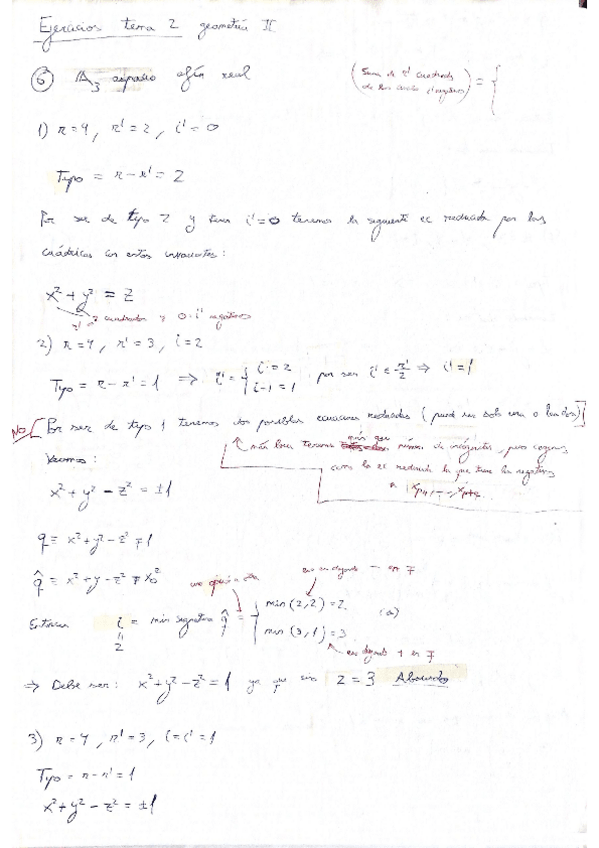 Ejercicios tema 2 geometría II
⑥ A₃ espacio afín real
(Suma de nº cuadrados de los ) = {
1) r=4, r'=2, i'=0
Tipo = r-r' = 2
Por ser de tipo 2 y tener i'=0 tenemos la siguiente ec reducida por las
cuádricas con estos invariantes:
x² + y² = z
r' = 2 cuadrados y 0=i' negativos
2) r=4, r'=3, i=2
Tipo = r-r' = 1 ⇒ i' = { i=2 i-1=1 por ser i' ≤ r'/2 ⇒ i'=1
NO [Por ser de tipo 1 tenemos dos posibles ecuaciones reducidas (puede ser solo una o las dos)]
más bien tenemos más que número de incógnitas, pero cogemos
como la ec reducida la que tiene los negativos
a
Veamos:
x² + y² - z² = ±1
q ≡ x² + y² - z² ∓ 1
q̂ ≡ x² + y - z² ∓ x₀²
Entonces i = min signatura q̂ = { min (2,2) = 2 (a)
2
min (3,1) = 3
⇒ Debe ser: x² + y² - z² = 1 ya que sin 2 = 3 Absurdo
3) r=4, r'=3, i=i'=1
Tipo = r-r' = 1
x² + y² - z² = ±1